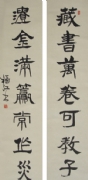 藏書萬卷可教子
遺金滿籯常作災